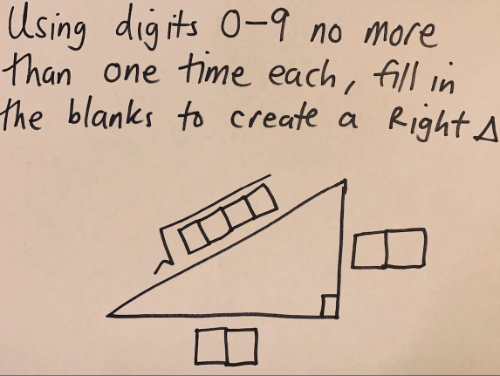 Using digits 0-9 no more
than one time each, fill in
the blanks to create a Right Δ